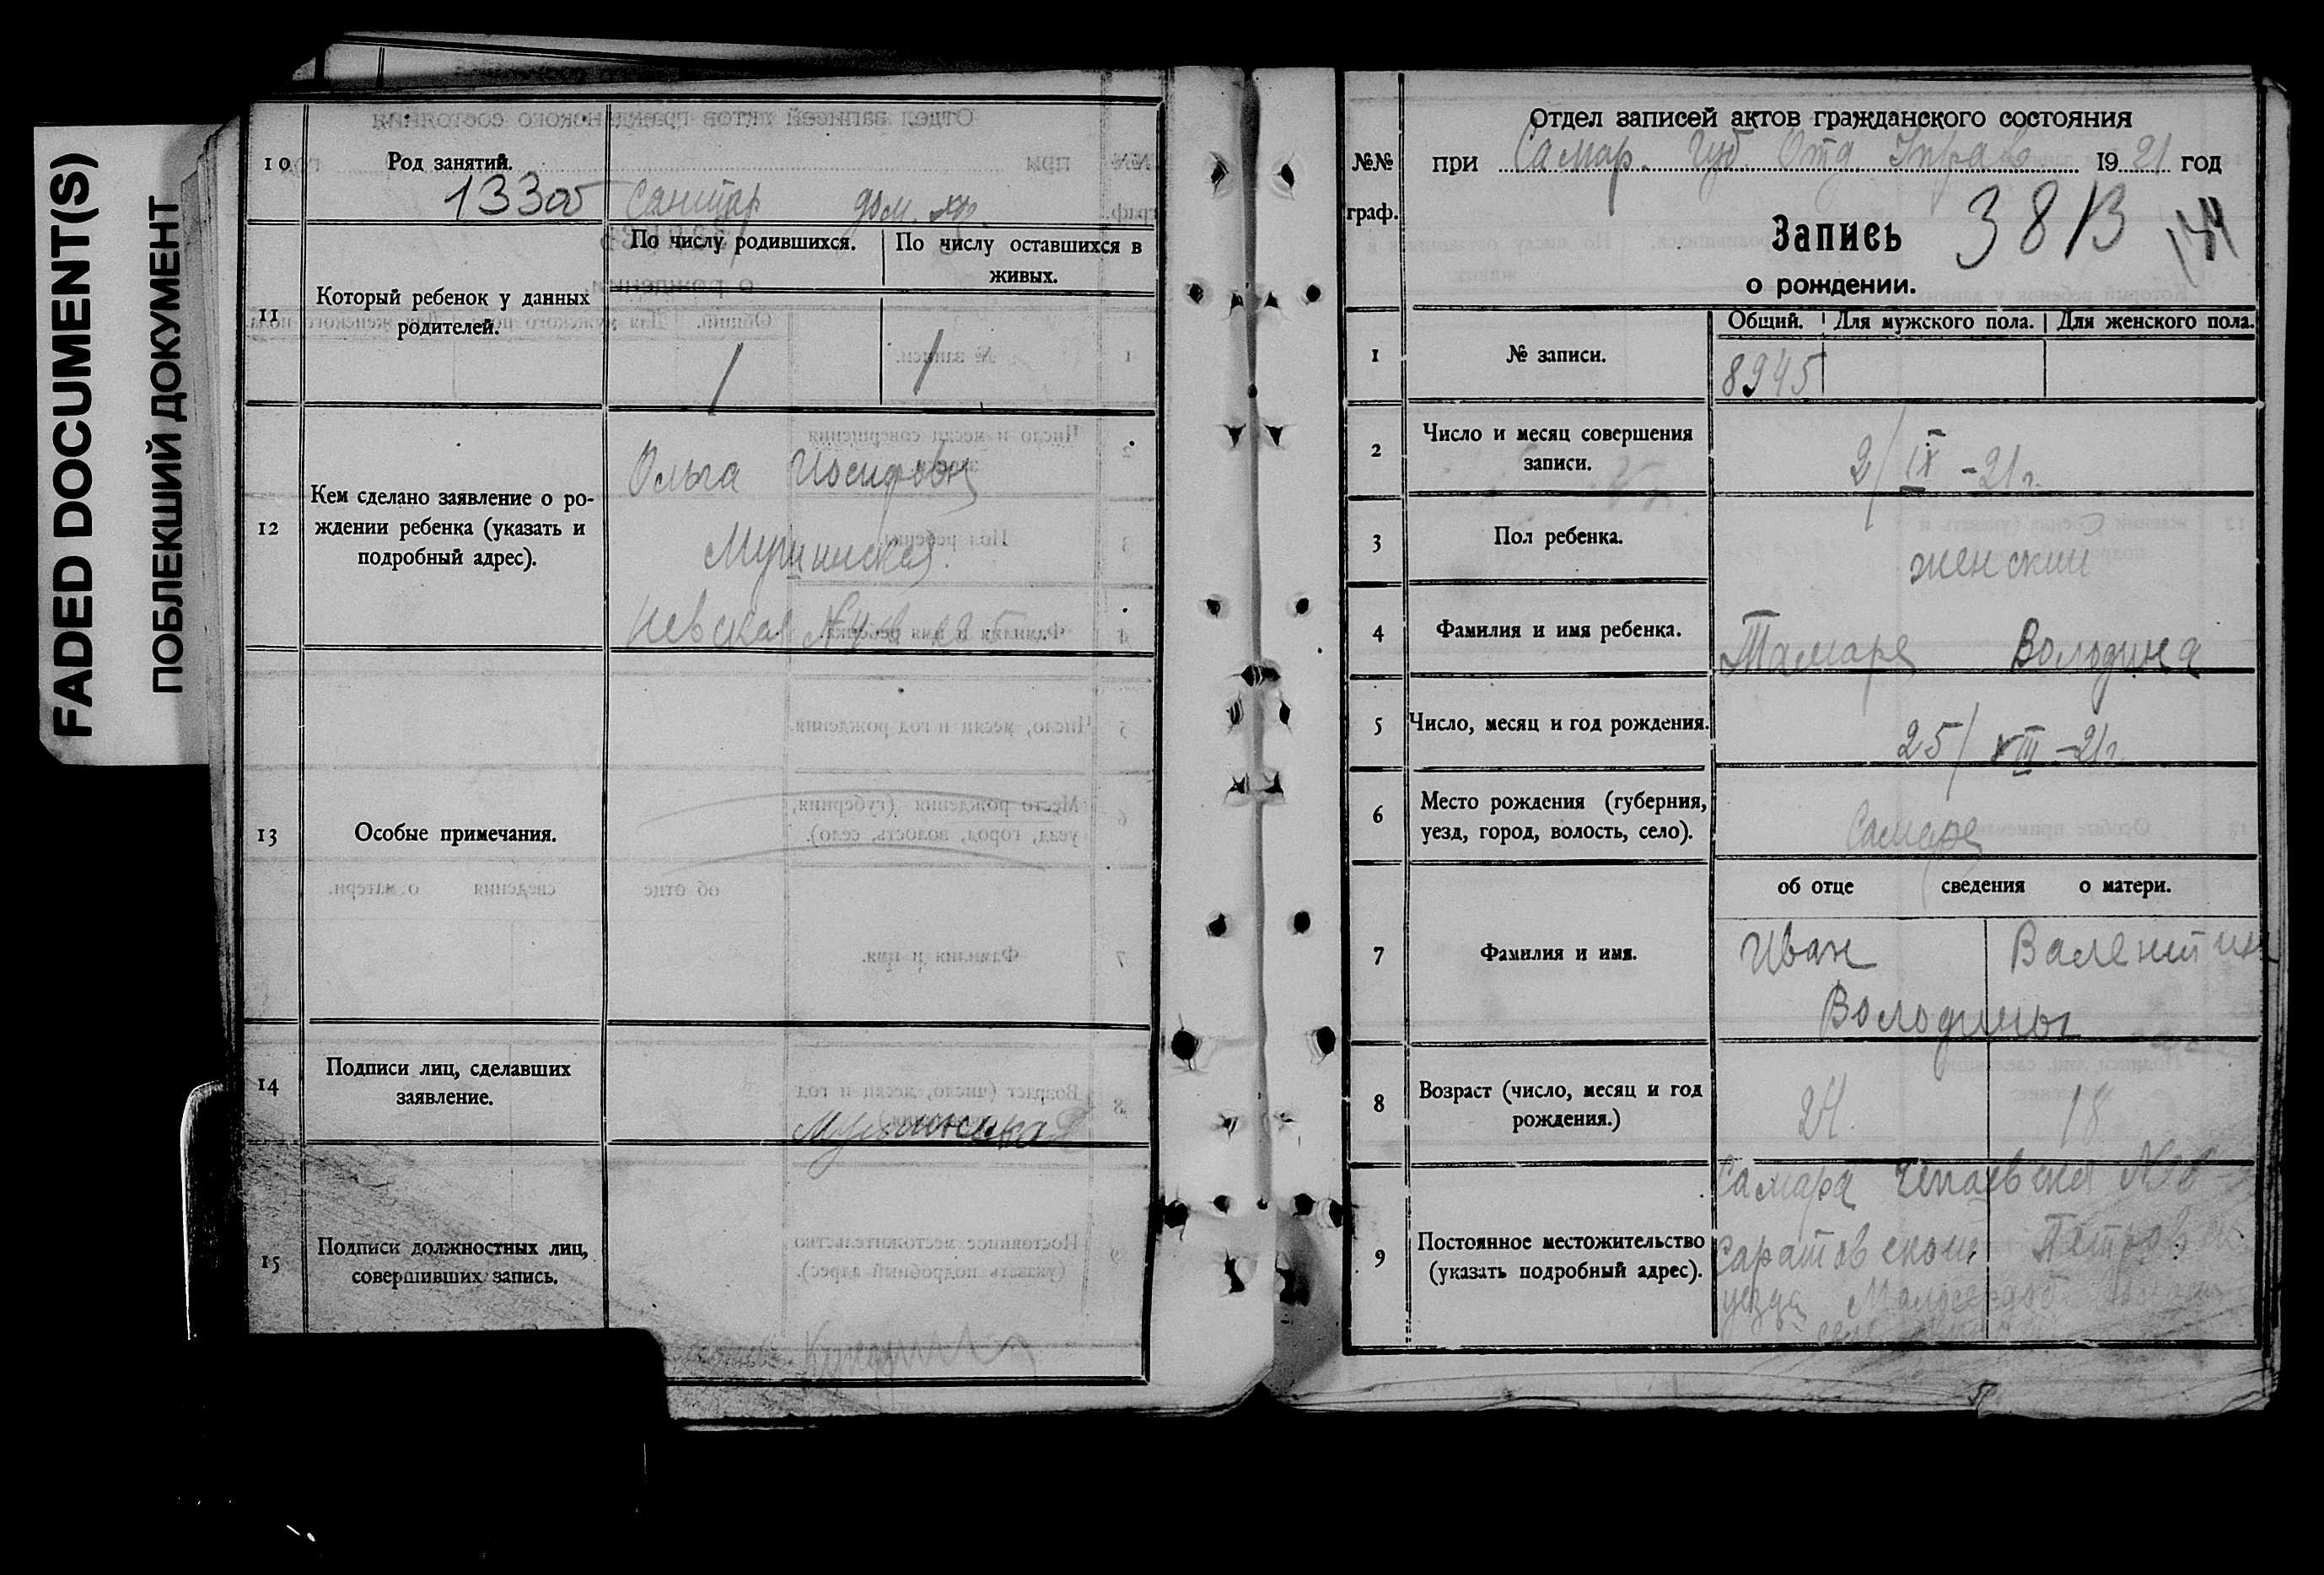 FADED DOCUMENT(S)
ПОБЛЕКШИЙ ДОКУМЕНТ
10
Род занятий.
1330
Санитар
дом. хоз.
11
Который ребенок у данных
родителей.
По числу родившихся.
По числу оставшихся в
живых.
1
1
12
Кем сделано заявление о ро-
ждении ребенка (указать и
подробный адрес).
Ольга Иосифовна
Мушинская
Невская №
13
Особые примечания.
14
Подписи лиц, сделавших
заявление.
15
Подписи должностных лиц,
совершивших запись.
№№
граф.
Отдел записей актов гражданского состояния
при Самар. Губ. Отд. Управ. 1921 год
Запись 38 В
о рождении.
1
№ записи.
Общий. Для мужского пола. Для женского пола.
8945
2
Число и месяц совершения
записи.
2/IX -21г.
3
Пол ребенка.
женский
4
Фамилия и имя ребенка.
Тамара Володина
5
Число, месяц и год рождения.
25/VIII -21г.
6
Место рождения (губерния,
уезд, город, волость, село).
Самара
об отце сведения о матери.
7
Фамилия и имя.
Иван Валентина
Володины
8
Возраст (число, месяц и год
рождения.)
24. 18
9
Постоянное местожительство
(указать подробный адрес).
Самара Чепаевская №
Саратовской Петров
уезда